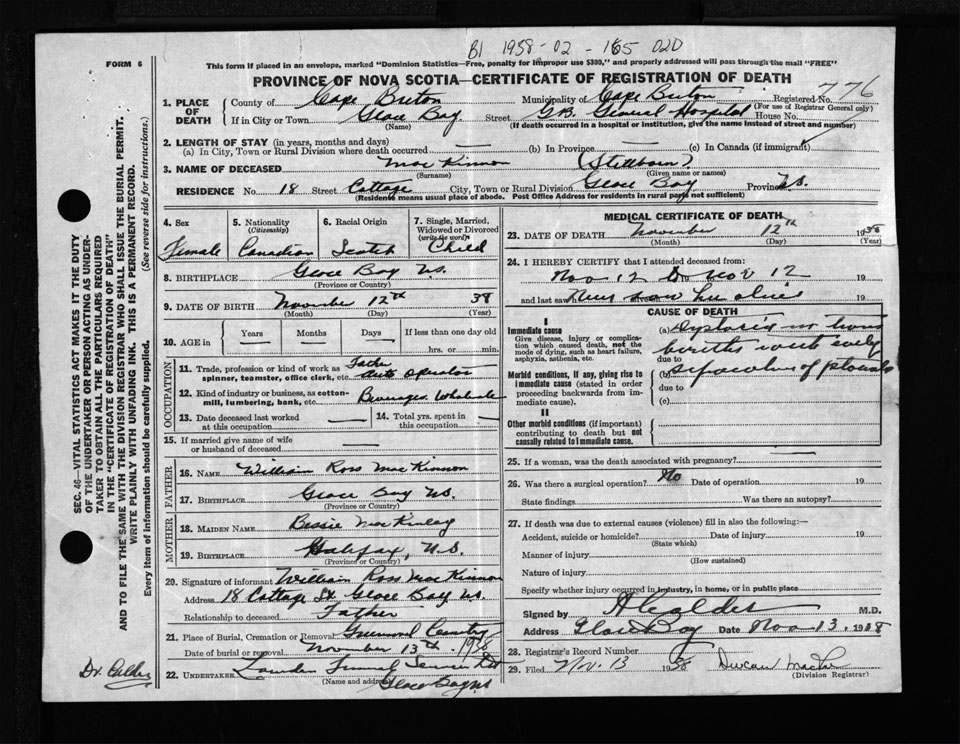 B1 1958-02-165 020
FORM 6
This form if placed in an envelope, marked "Dominion Statistics—Free, penalty for improper use $300," and properly addressed will pass through the mail "FREE"
PROVINCE OF NOVA SCOTIA—CERTIFICATE OF REGISTRATION OF DEATH
1. PLACE OF DEATH County of Cape Breton Municipality of Cape Breton Registered No. 776
(For use of Registrar General only)
If in City or Town Glace Bay Street G.B. General Hospital House No.
(Name) (If death occurred in a hospital or institution, give the name instead of street and number)
2. LENGTH OF STAY (in years, months and days)
(a) In City, Town or Rural Division where death occurred — (b) In Province — (c) In Canada (if immigrant)
3. NAME OF DECEASED MacKinnon (Stillborn)
(Surname) (Given name or names)
RESIDENCE No. 18 Street Cottage City, Town or Rural Division Glace Bay Province NS.
(Residence means usual place of abode. Post Office Address for residents in rural parts not sufficient)
4. Sex 5. Nationality 6. Racial Origin 7. Single, Married,
(Citizenship) Widowed or Divorced
(write the word)
Female Canadian Scotch Child
8. BIRTHPLACE Glace Bay NS.
(Province or County)
9. DATE OF BIRTH November 12th 38
(Month) (Day) (Year)
10. AGE in Years Months Days If less than one day old
hrs. or min.
OCCUPATION
11. Trade, profession or kind of work as Father
spinner, teamster, office clerk, etc. Auto Operator
12. Kind of industry or business, as cotton-
mill, lumbering, bank, etc. Beverages. Wholesale
13. Date deceased last worked 14. Total yrs. spent in
at this occupation — this occupation —
15. If married give name of wife
or husband of deceased —
FATHER
16. NAME William Ross MacKinnon
17. BIRTHPLACE Glace Bay NS.
(Province or Country)
MOTHER
18. MAIDEN NAME Bessie MacKinlay
19. BIRTHPLACE Halifax, N.S.
(Province or Country)
20. Signature of informant William Ross MacKinnon
Address 18 Cottage St. Glace Bay NS
Relationship to deceased Father
21. Place of Burial, Cremation or Removal Greenwood Cemetery
Date of burial or removal November 13th 1938
22. UNDERTAKER Funeral Service Ltd
(Name and address) Glace Bay NS
MEDICAL CERTIFICATE OF DEATH
23. DATE OF DEATH November 12th 1938
(Month) (Day) (Year)
24. I HEREBY CERTIFY that I attended deceased from:
Nov 12 to Nov 12 19
and last saw h Never saw her alive 19
CAUSE OF DEATH
I
Immediate cause
Give disease, injury or complica-
tion which caused death, not the
mode of dying, such as heart failure,
asphyxia, asthenia, etc.
(a) Dystocia in twin
births with early
due to
Morbid conditions, if any, giving rise to
immediate cause (stated in order
proceeding backwards from im-
mediate cause).
(b) of
due to
(c)
II
Other morbid conditions (if important)
contributing to death but not
causally related to immediate cause.
25. If a woman, was the death associated with pregnancy?
26. Was there a surgical operation? No Date of operation 19
State findings Was there an autopsy?
27. If death was due to external causes (violence) fill in also the following:—
Accident, suicide or homicide? Date of injury 19
(State which)
Manner of injury
(How sustained)
Nature of injury
Specify whether injury occurred in industry, in home, or in public place
Signed by A Calder M.D.
Address Glace Bay Date Nov 13. 1938
28. Registrar's Record Number
29. Filed Nov. 13 1938 Duncan
(Division Registrar)
SEC. 46—VITAL STATISTICS ACT MAKES IT THE DUTY
OF THE UNDERTAKER OR PERSON ACTING AS UNDER-
TAKER TO OBTAIN ALL THE PARTICULARS REQUIRED
IN THE "CERTIFICATE OF REGISTRATION OF DEATH"
AND TO FILE THE SAME WITH THE DIVISION REGISTRAR WHO SHALL ISSUE THE BURIAL PERMIT.
WRITE PLAINLY WITH UNFADING INK. THIS IS A PERMANENT RECORD.
Every item of information should be carefully supplied. (See reverse side for instructions.)
Dr. Calder